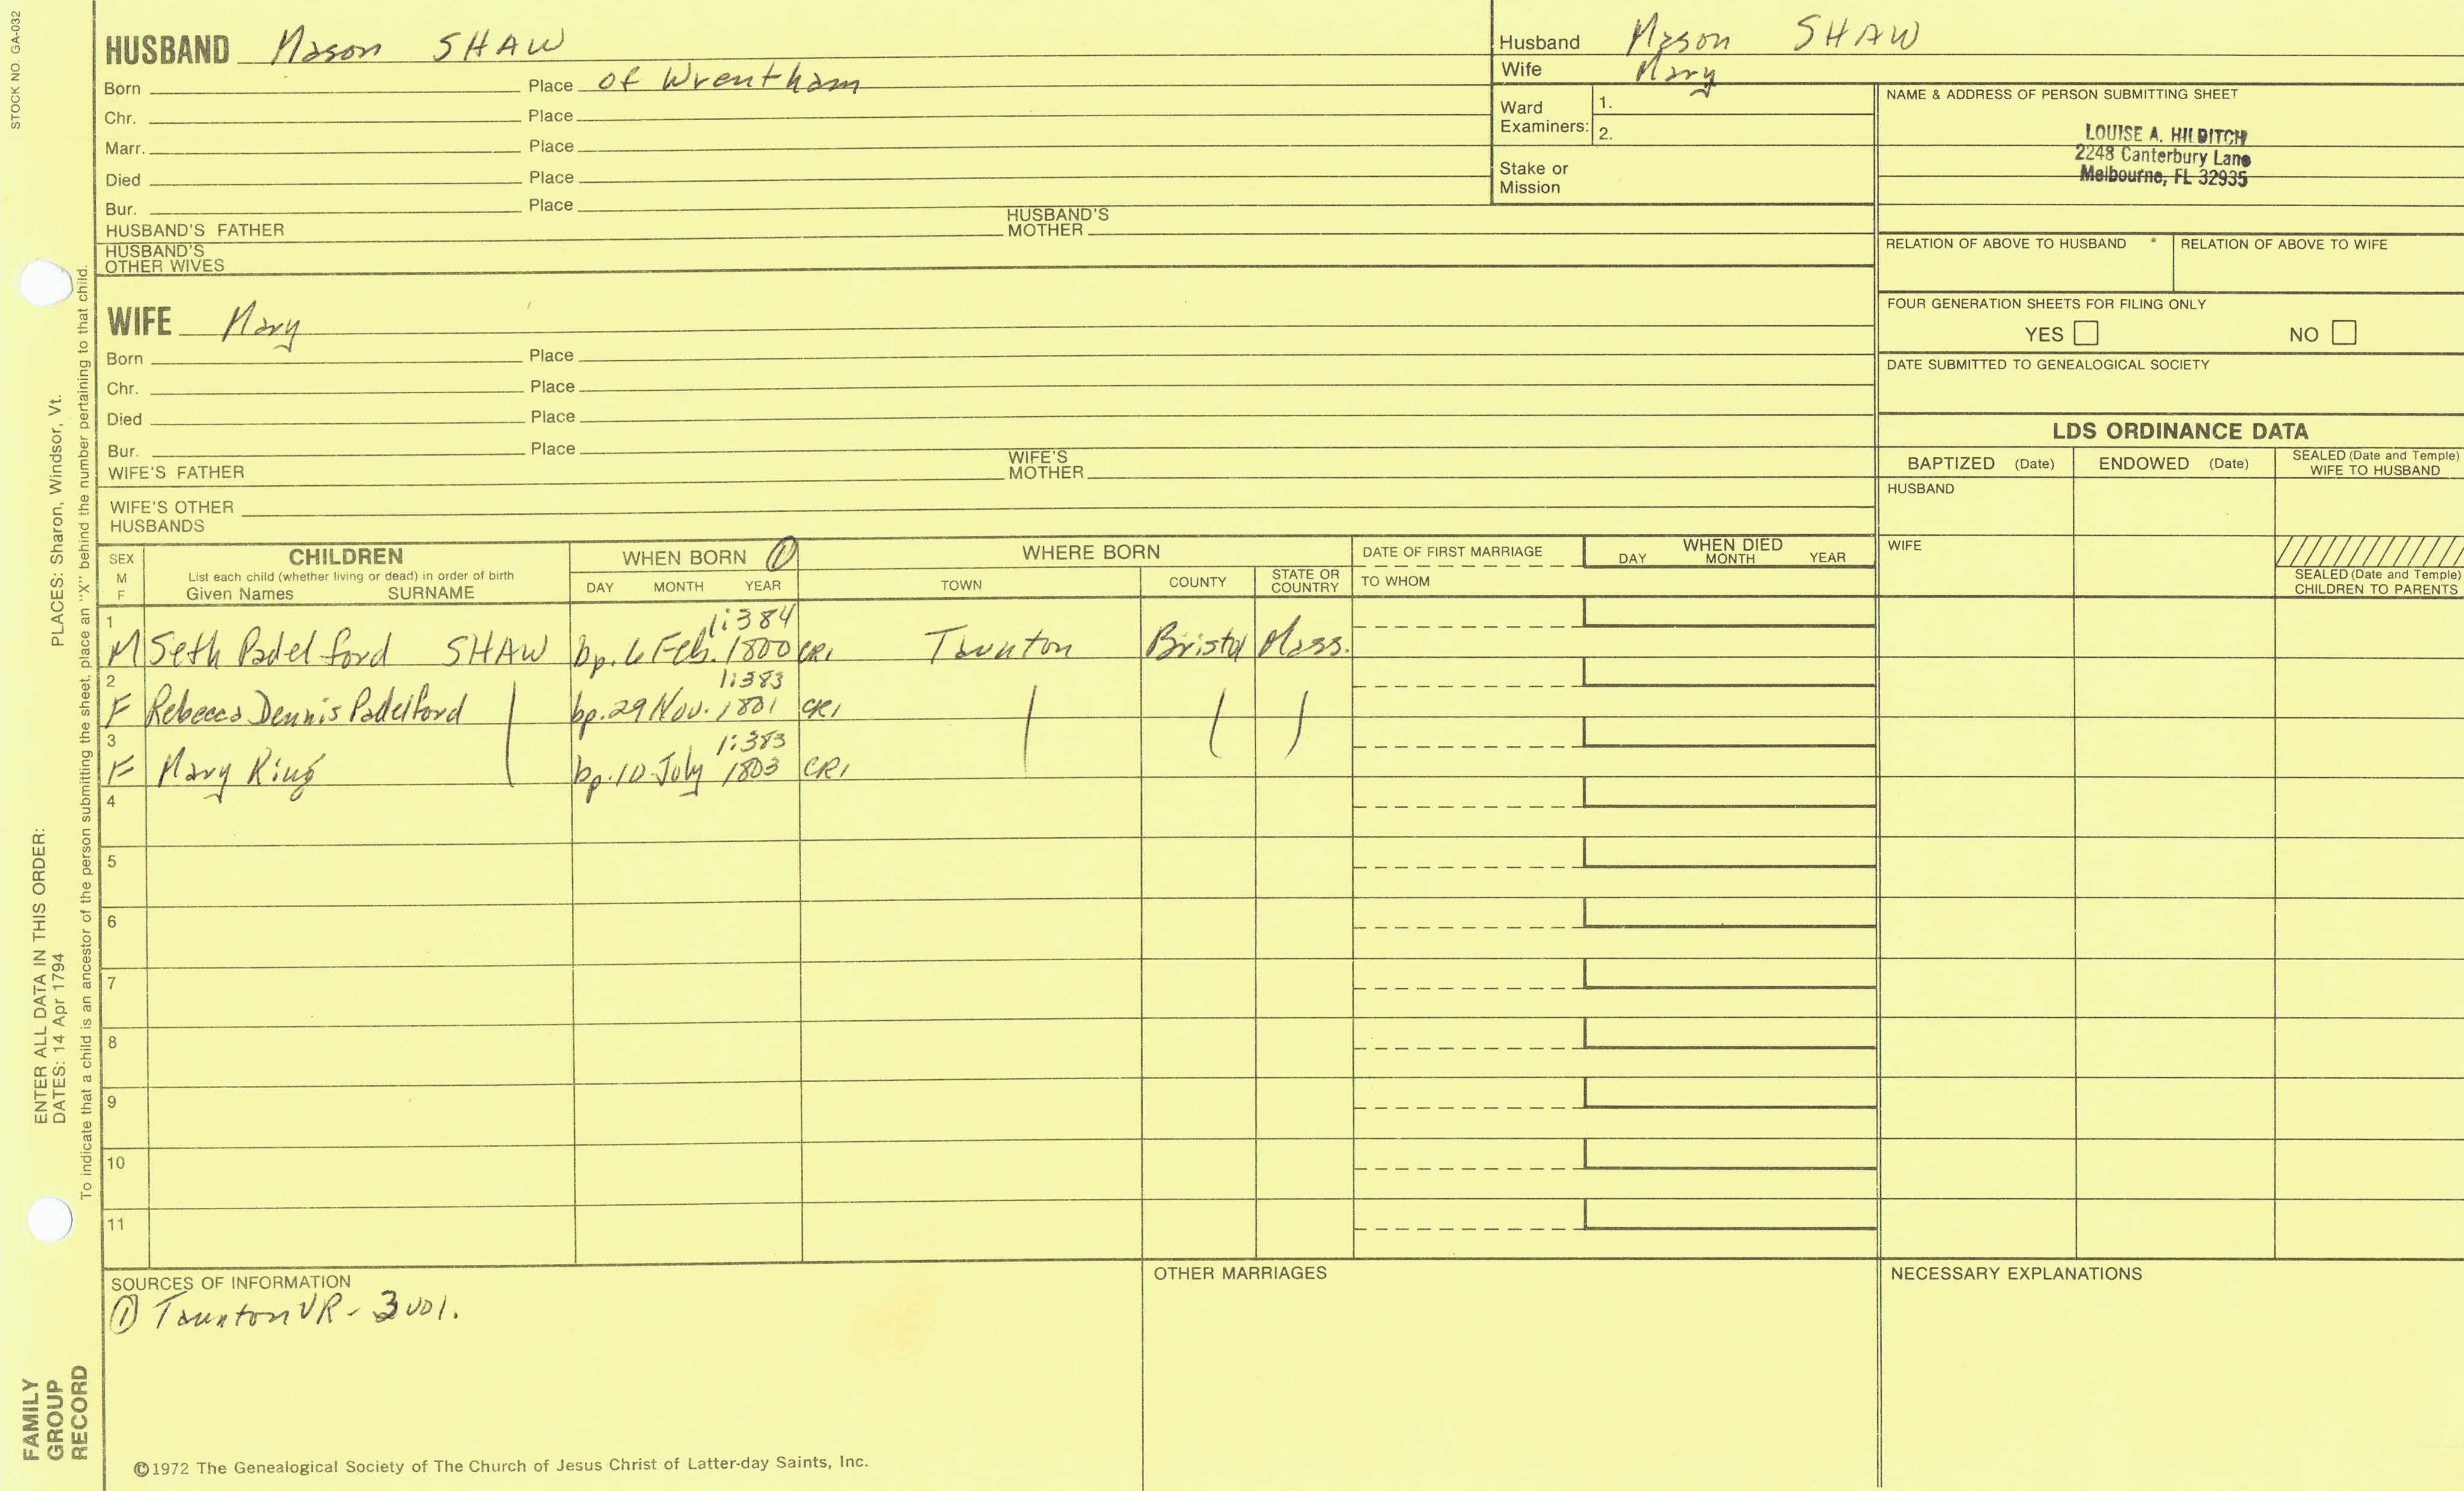 STOCK NO. GA-032
HUSBAND Mason SHAW
Born Place of Wrentham
Chr. Place
Marr. Place
Died Place
Bur. Place
HUSBAND'S FATHER HUSBAND'S MOTHER
HUSBAND'S OTHER WIVES
Husband Mason SHAW
Wife Mary
Ward Examiners: 1.
2.
Stake or Mission
NAME & ADDRESS OF PERSON SUBMITTING SHEET
LOUISE A. HILDITCH
2248 Canterbury Lane
Melbourne, FL 32935
RELATION OF ABOVE TO HUSBAND RELATION OF ABOVE TO WIFE
FOUR GENERATION SHEETS FOR FILING ONLY
YES NO
DATE SUBMITTED TO GENEALOGICAL SOCIETY
WIFE Mary
Born Place
Chr. Place
Died Place
Bur. Place
WIFE'S FATHER WIFE'S MOTHER
WIFE'S OTHER HUSBANDS
LDS ORDINANCE DATA
BAPTIZED (Date) ENDOWED (Date) SEALED (Date and Temple) WIFE TO HUSBAND
HUSBAND
WIFE
SEALED (Date and Temple) CHILDREN TO PARENTS
SEX M F
CHILDREN
List each child (whether living or dead) in order of birth
Given Names SURNAME
WHEN BORN ①
DAY MONTH YEAR
WHERE BORN
TOWN COUNTY STATE OR COUNTRY
DATE OF FIRST MARRIAGE
TO WHOM
WHEN DIED
DAY MONTH YEAR
1 1:384
M Seth Padelford SHAW bp. 6 Feb. 1800 CR1 Taunton Bristol Mass.
2 1:383
F Rebecca Dennis Padelford bp. 29 Nov. 1801 CR1
3 1:383
F Mary King bp. 10 July 1803 CR1
4
5
6
7
8
9
10
11
SOURCES OF INFORMATION
① Taunton VR - 3 vol.
OTHER MARRIAGES
NECESSARY EXPLANATIONS
©1972 The Genealogical Society of The Church of Jesus Christ of Latter-day Saints, Inc.
FAMILY GROUP RECORD
ENTER ALL DATA IN THIS ORDER:
DATES: 14 Apr 1794 PLACES: Sharon, Windsor, Vt.
To indicate that a child is an ancestor of the person submitting the sheet, place an "X" behind the number pertaining to that child.